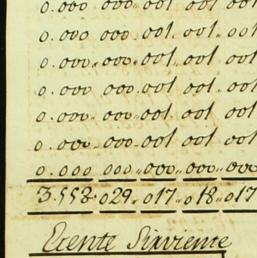 0.000 000 001 001 001
0.000 000 001 001 001
0.000 000 001 001 001
0.000 000 001 001 001
0.000 000 001 001 001
0.000 000 001 001 001
0.000 000 000 000 000
3.558 029 017 018 017
Ecente Sirviente